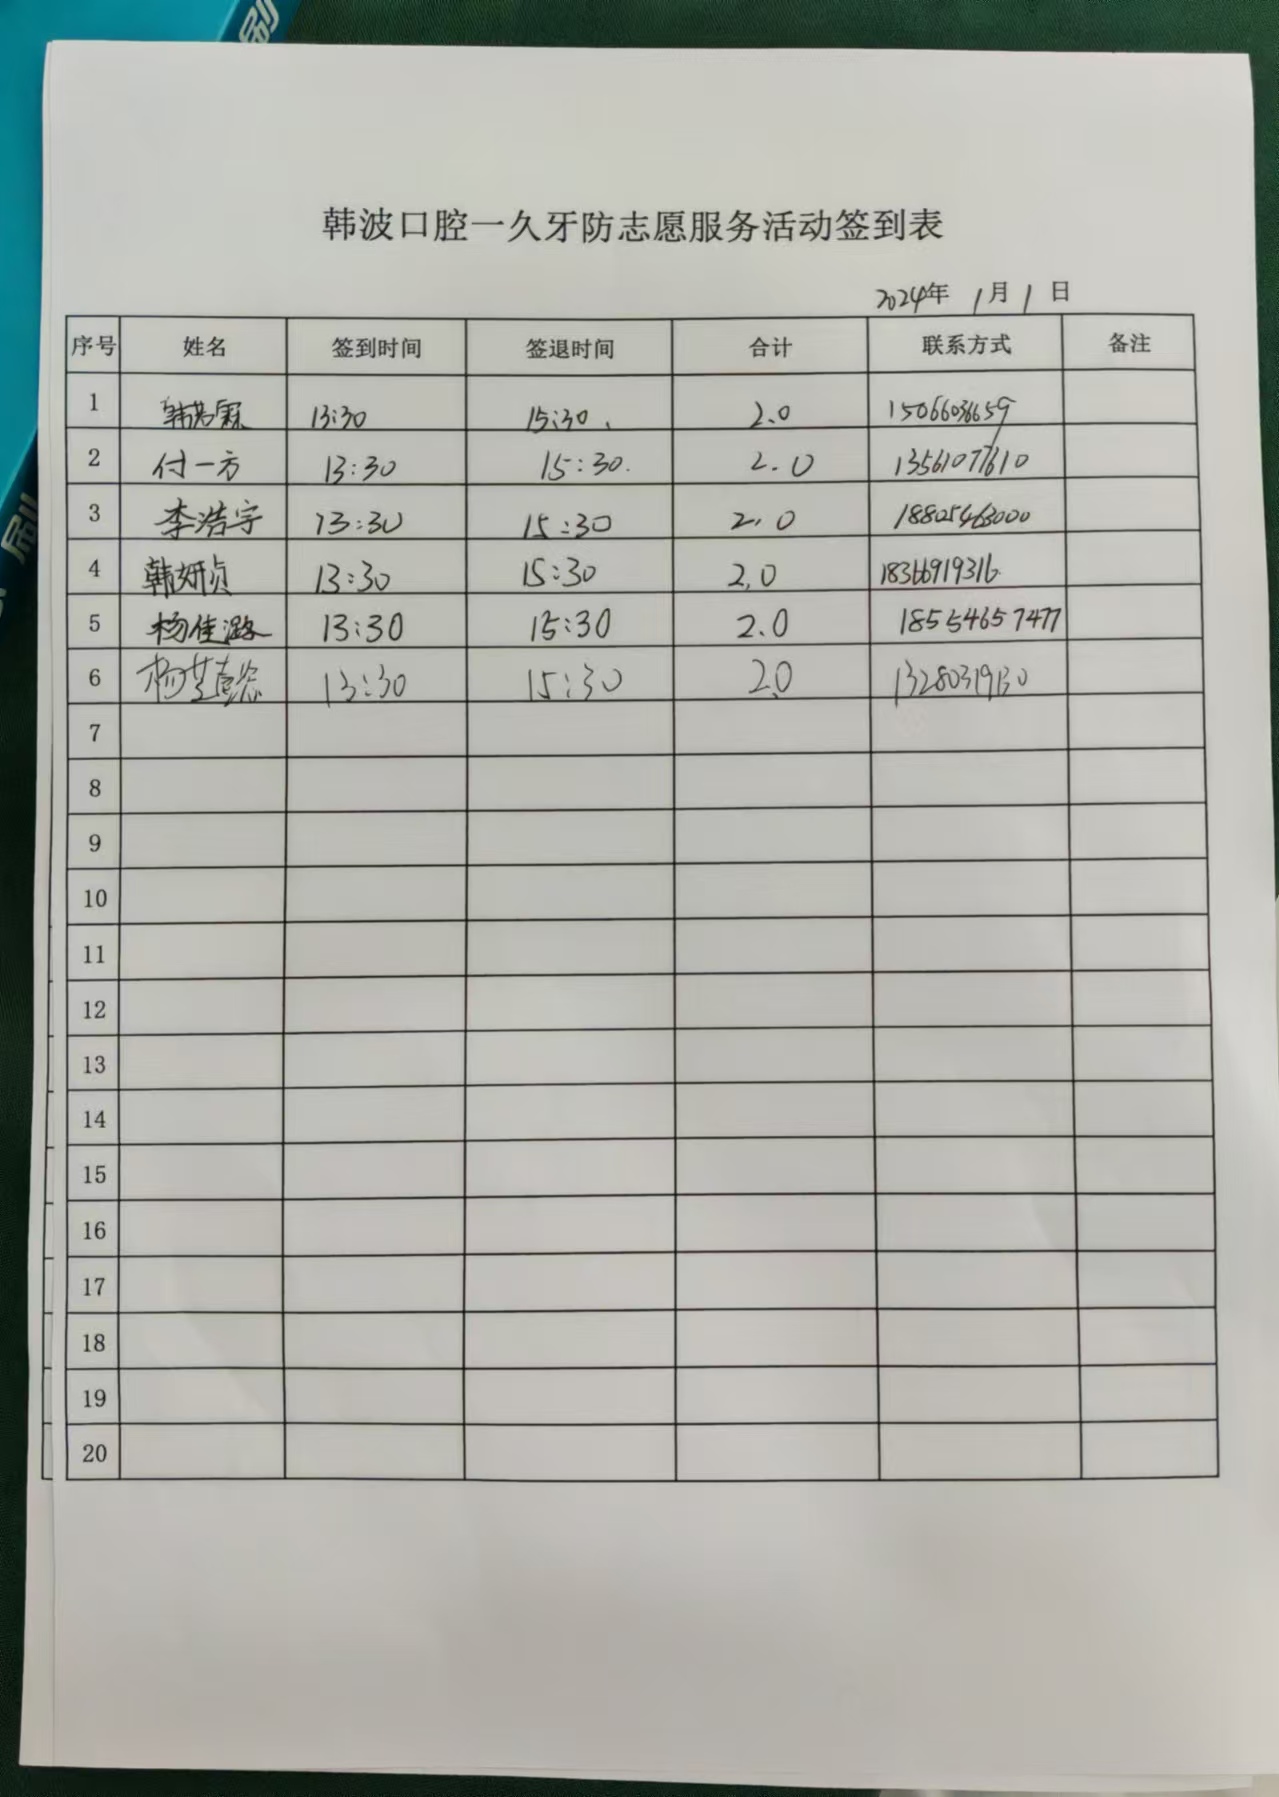 刷
刷
韩波口腔一久牙防志愿服务活动签到表
2024年 1月1日
序号 姓名 签到时间 签退时间 合计 联系方式 备注
1 韩若霖 13:30 15:30. 2.0 15066036659
2 付一方 13:30 15:30. 2.0 13561077610
3 李浩宇 13:30 15:30 2.0 18805463000
4 韩妍贞 13:30 15:30 2.0 18366919316.
5 杨佳潞 13:30 15:30 2.0 18554657477
6 13:30 15:30 2.0 13280319130
7
8
9
10
11
12
13
14
15
16
17
18
19
20